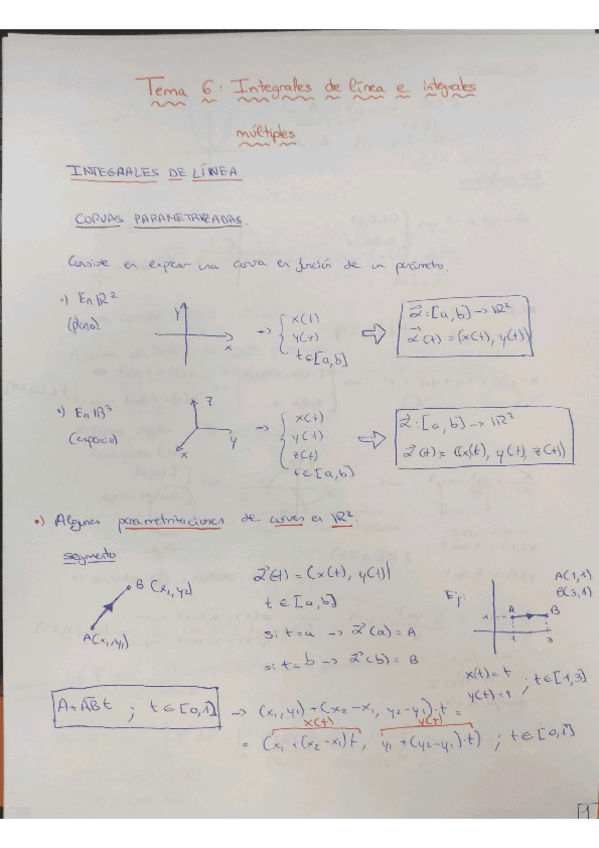 Tema 6: Integrales de línea e integrales
múltiples
INTEGRALES DE LÍNEA
CURVAS PARAMETRIZADAS.
Consiste en expresar una curva en función de un parámetro.
•) En ℝ² (plano)
Y
x
→ { x(t) y(t) t∈[a,b]
⇒ α⃗:[a,b) → ℝ²
α⃗(t) = (x(t), y(t))
•) En ℝ³ (espacio)
z
y
x
→ { x(t) y(t) z(t) t∈[a,b]
⇒ α⃗:[a,b] → ℝ³
α⃗(t) = (x(t), y(t), z(t))
•) Algunas parametrizaciones de curvas en ℝ².
segmento
B (x₁, y₂)
A(x₁, y₁)
α⃗(t) = (x(t), y(t))
t ∈ [a,b]
si t=a → α⃗(a) = A
si t=b → α⃗(b) = B
Ej:
A(1,1)
B(3,1)
A B
1
1 3
x(t) = t
y(t) = 1 ; t∈[1,3]
A+AB t ; t∈[0,1] → (x₁,y₁)+(x₂-x₁, y₂-y₁)·t =
x(t) y(t)
= (x₁+(x₂-x₁)t, y₁+(y₂-y₁)·t) ; t∈[0,1]
1